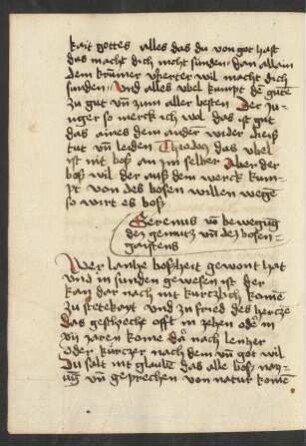 kait gottes alles das du von got hast
das macht dich nicht sünden dan allain
dein krümer v̈kerter wil macht dich
sunden Vnd alles vbel kumpt dē gůtē
zu gut vn̄ zum aller besten Der Ju-
nger so merck ich wol das ist gůt
das aines dem andern wider dienst
tut vn̄ leiden Theodoꝛ das vbel
ist nit boß an im selber Aber der
boß wil der auß dem werck kum-
pt von des bosen willen wege
so wirt es boß
Serenus vō bewegūg
des gemutz vn̄ des bosen
gaistens
Wer lanhe boßheit gewont hat
vnd in sunden gewesen ist der
kan dar nach nit kurtzlich komē
zu stetekayt vnd zu fried des hercze
das geschiecht offt in zehen odeꝛ in
xij jaren kome daꝛ nach lenher
oder kürczer nach dem vn̄ got wil
Du salt nit glaubē das alle boß nay-
ūg vn̄ geprechen von natur komē